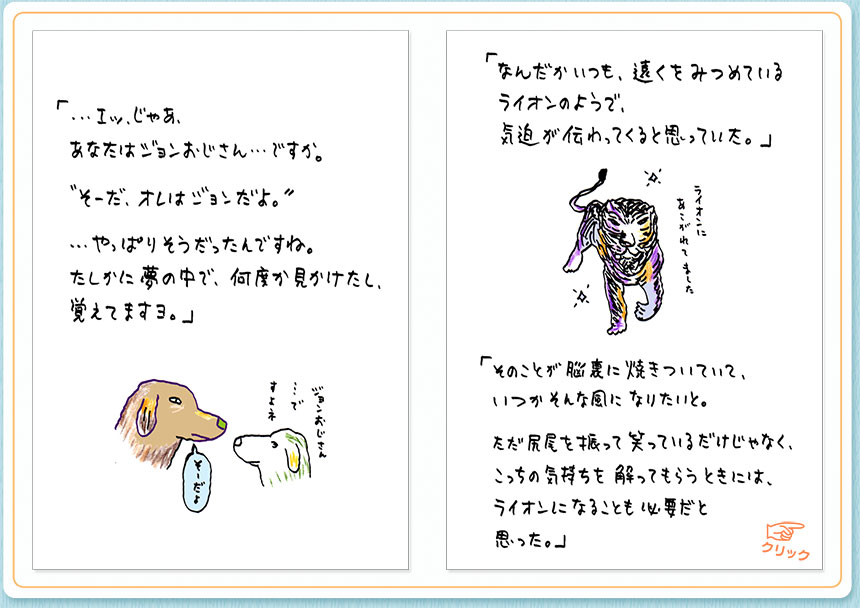 「…エッ、じゃあ、
あなたはジョンおじさん…ですか。
“そーだ、オレはジョンだよ。”
…やっぱりそうだったんですね。
たしかに夢の中で、何度か見かけたし、
覚えてますヨ。」
ジョンおじさん
…で
すよネ
そーだよ
「なんだかいつも、遠くをみつめている
ライオンのようで、
気迫が伝わってくると思っていた。」
ライオンに
あこがれてました
「そのことが脳裏に焼きついていて、
いつかそんな風になりたいと。
ただ尻尾を振って笑っているだけじゃなく、
こっちの気持ちを解ってもらうときには、
ライオンになることも必要だと
思った。」
クリック